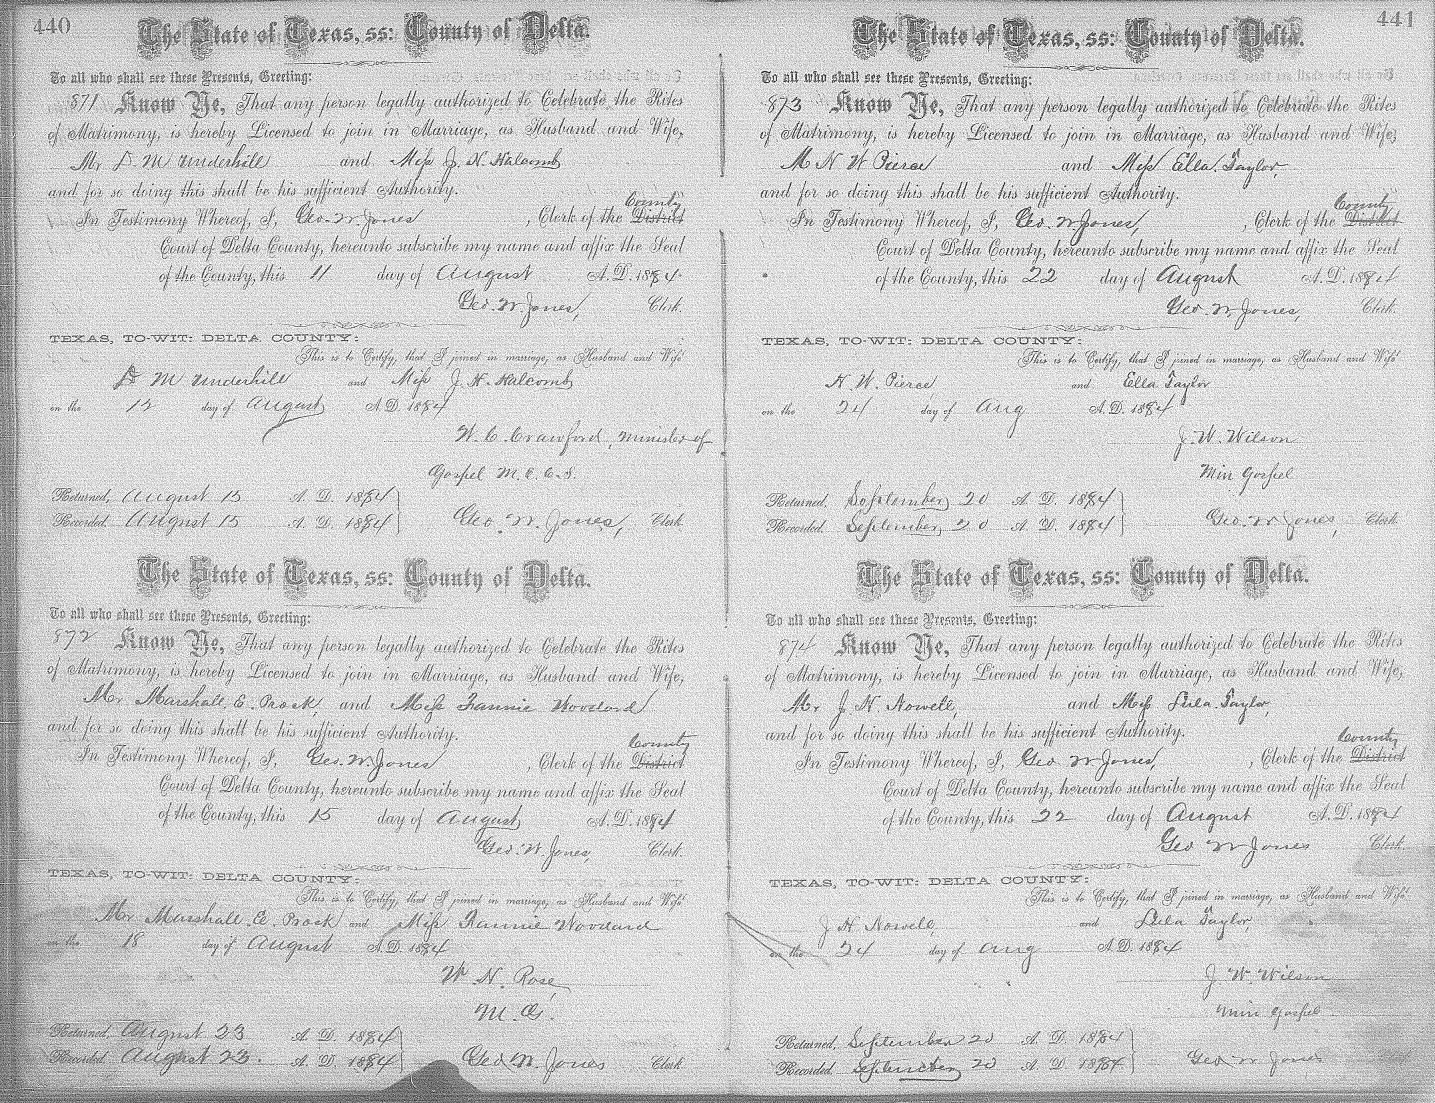 440
The State of Texas, ss: County of Delta.
To all who shall see these Presents, Greeting:
871 Know Ye, That any person legally authorized to Celebrate the Rites
of Matrimony, is hereby Licensed to join in Marriage, as Husband and Wife,
Mr D M Underhill and Miss J. N. Halcomb
and for so doing this shall be his sufficient Authority.
County
In Testimony Whereof, I, Geo. W. Jones , Clerk of the District
Court of Delta County, hereunto subscribe my name and affix the Seal
of the County, this 11 day of August A. D. 1884
Geo. W. Jones, Clerk.
TEXAS, TO-WIT: DELTA COUNTY:
This is to Certify, that I joined in marriage, as Husband and Wife
D M Underhill and Miss J. N. Halcomb
on the 12 day of August A. D. 1884
W. C. Crawford, Minister of
Gospel M. E. C. S.
Returned, August 15 A. D. 1884
Recorded, August 15 A. D. 1884 Geo. W. Jones, Clerk
The State of Texas, ss: County of Delta.
To all who shall see these Presents, Greeting:
872 Know Ye, That any person legally authorized to Celebrate the Rites
of Matrimony, is hereby Licensed to join in Marriage, as Husband and Wife,
Mr Marshall. E. Prock, and Miss Fannie Woodard
and for so doing this shall be his sufficient Authority.
County
In Testimony Whereof, I, Geo. W. Jones , Clerk of the District
Court of Delta County, hereunto subscribe my name and affix the Seal
of the County, this 15 day of August A. D. 1884
Geo. W. Jones, Clerk.
TEXAS, TO-WIT: DELTA COUNTY:
This is to Certify, that I joined in marriage, as Husband and Wife
Mr Marshall. E. Prock and Miss Fannie Woodard
on the 18 day of August A. D. 1884
W. N. Rose,
M. G.
Returned, August 23 A. D. 1884
Recorded August 23. A. D. 1884 Geo W. Jones Clerk
441
The State of Texas, ss: County of Delta.
To all who shall see these Presents, Greeting:
873 Know Ye, That any person legally authorized to Celebrate the Rites
of Matrimony, is hereby Licensed to join in Marriage, as Husband and Wife,
M N W Pierce and Miss Ella. Taylor,
and for so doing this shall be his sufficient Authority.
County
In Testimony Whereof, I, Geo. W Jones, , Clerk of the District
Court of Delta County, hereunto subscribe my name and affix the Seal
of the County, this 22 day of August A. D. 1884
Geo. W. Jones, Clerk.
TEXAS, TO-WIT: DELTA COUNTY:
This is to Certify, that I joined in marriage, as Husband and Wife
N. W. Pierce and Ella Taylor
on the 24 day of Aug A. D. 1884
J. W. Wilson
Min Gospel
Returned, September 20 A. D. 1884
Recorded, September 20 A. D. 1884 Geo. W Jones, Clerk.
The State of Texas, ss: County of Delta.
To all who shall see these Presents, Greeting:
874 Know Ye, That any person legally authorized to Celebrate the Rites
of Matrimony, is hereby Licensed to join in Marriage, as Husband and Wife,
Mr J. N. Nowell, and Miss Lula. Taylor,
and for so doing this shall be his sufficient Authority.
County
In Testimony Whereof, I, Geo W Jones, , Clerk of the District
Court of Delta County, hereunto subscribe my name and affix the Seal
of the County, this 22 day of August A. D. 1884
Geo W Jones Clerk.
TEXAS, TO-WIT: DELTA COUNTY:
This is to Certify, that I joined in marriage, as Husband and Wife
J N Nowell, and Lula Taylor,
on the 24 day of Aug A. D. 1884
J. W. Wilson
Min Gospel
Returned, September 20 A. D. 1884
Recorded. September 20 A. D. 1884 Geo W Jones